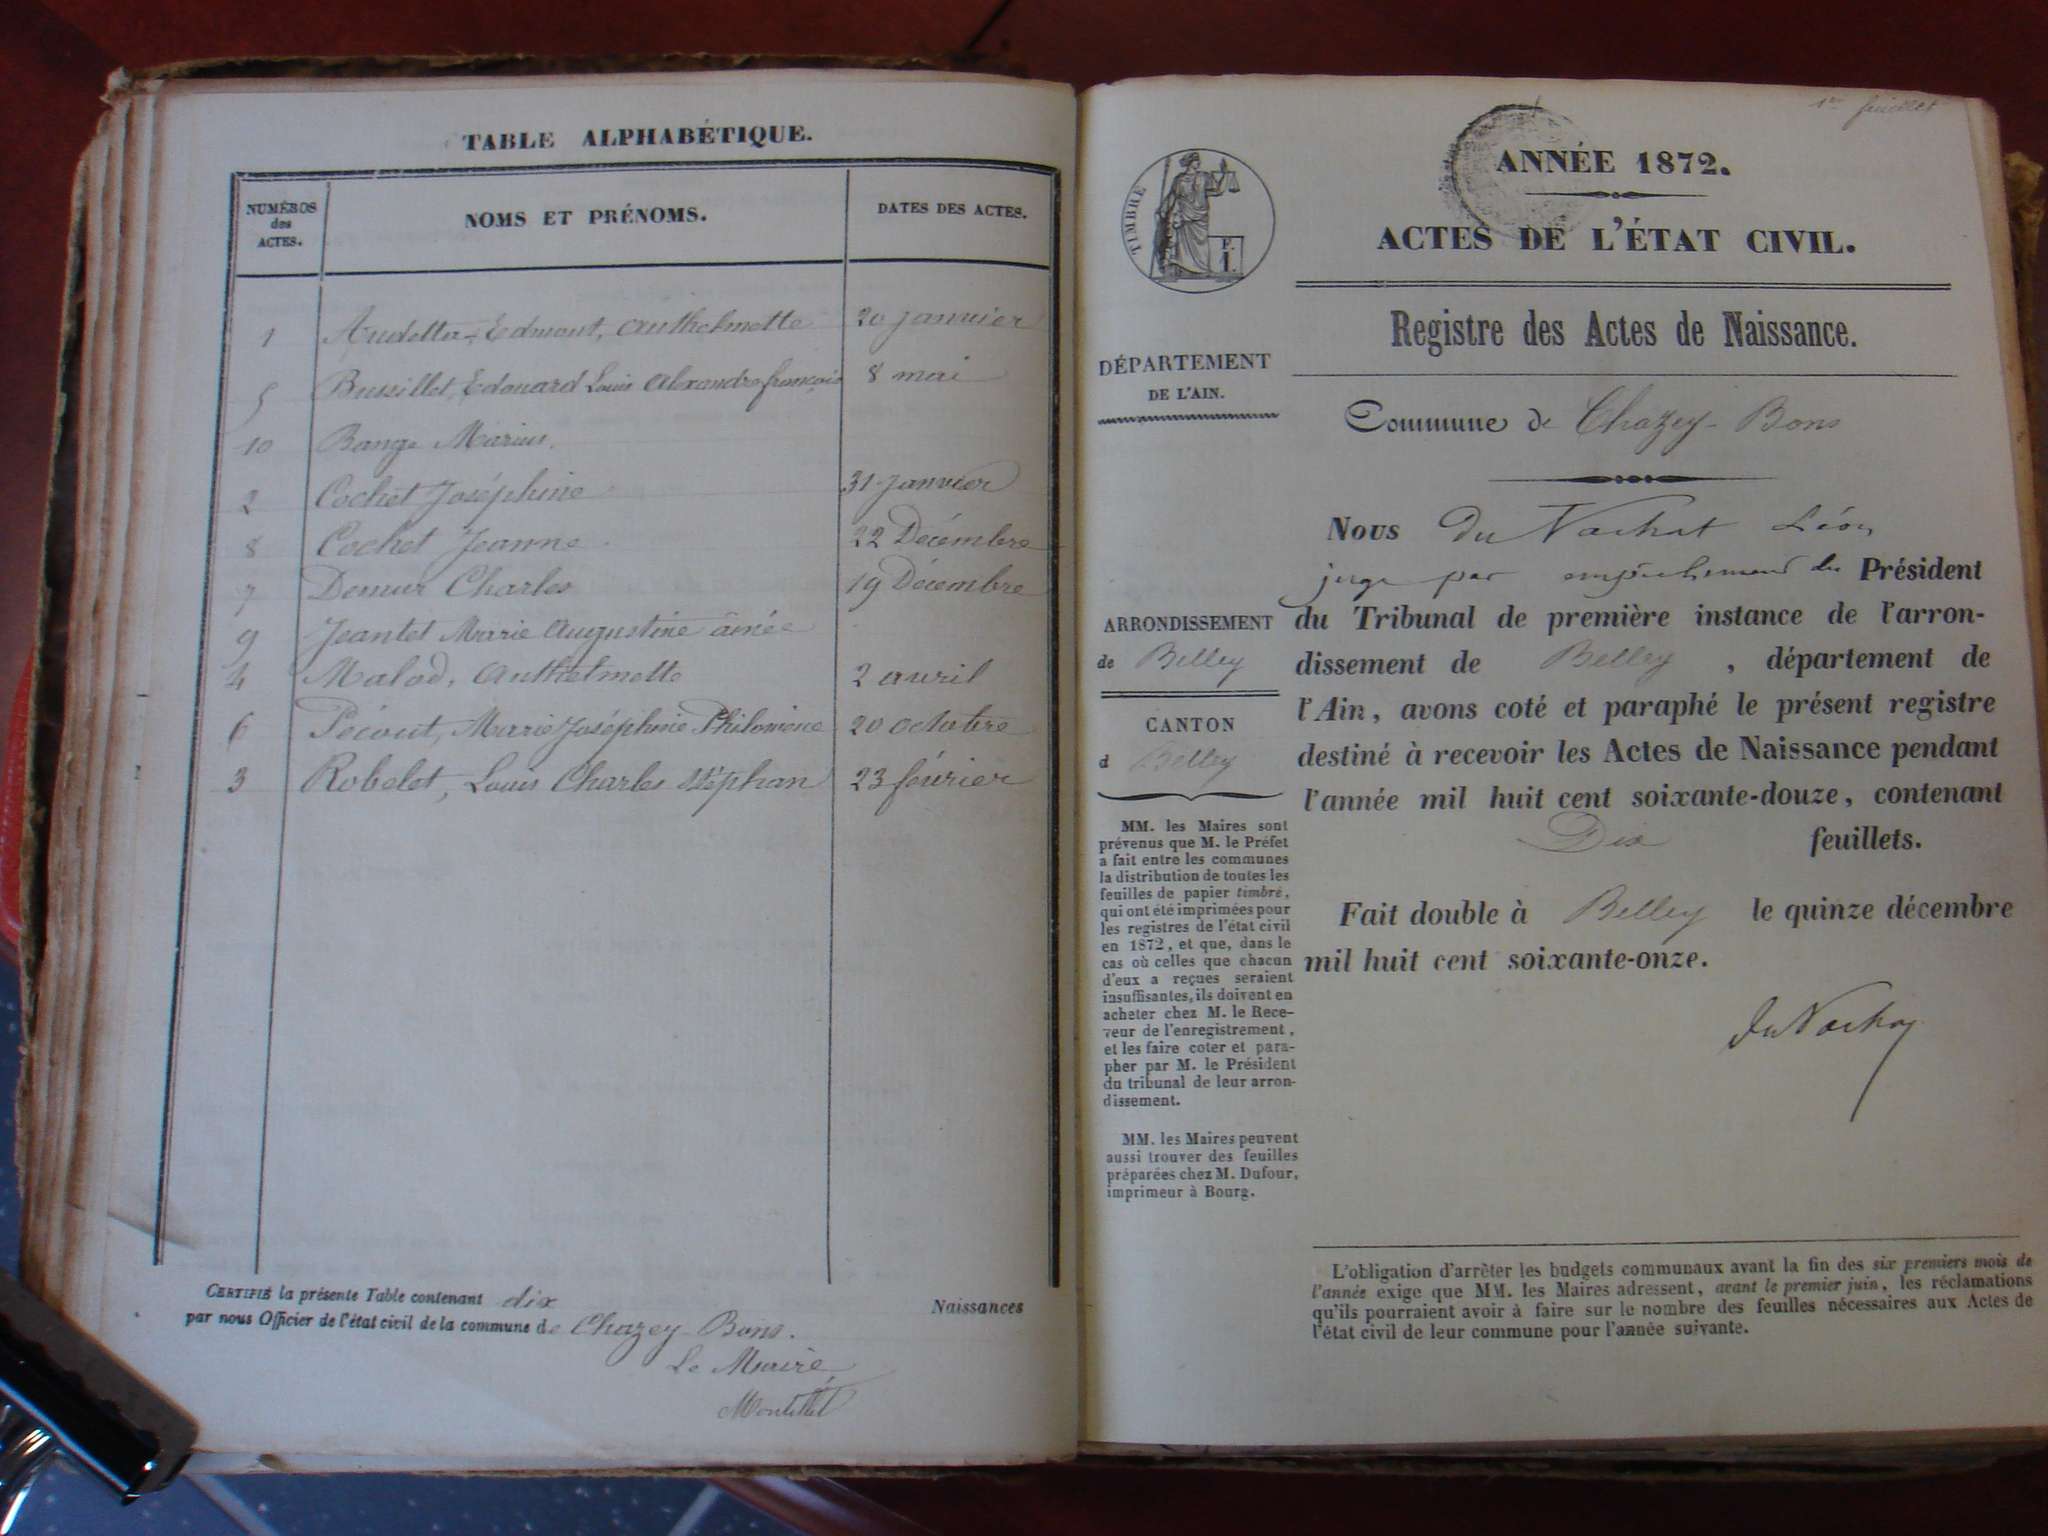 TABLE ALPHABÉTIQUE.
NUMÉROS des ACTES.
NOMS ET PRÉNOMS.
DATES DES ACTES.
1 Edmont, Anthelmette 20 janvier
5 Busillet, Edouard Louis Alexandre françois 8 mai
10 Bange Marius.
2 Cochet Joséphine 31 janvier
8 Cochet Jeanne. 22 Décembre
7 Demur Charles 19 Décembre
9 Jeantet Marie Augustine ainée
4 Malod, Anthelmette 2 avril
6 Pécout, Marie Joséphine Philomène 20 octobre
3 Robelet, Louis Charles Stéphan 23 février
CERTIFIÉ la présente Table contenant dix Naissances
par nous Officier de l'état civil de la commune de Chazey-Bons.
Le Maire
Montillet
1er feuillet
TIMBRE
F.
I.
ANNÉE 1872.
ACTES DE L'ÉTAT CIVIL.
Registre des Actes de Naissance.
DÉPARTEMENT
DE L'AIN.
Commune de Chazey-Bons
Nous Du Nachat Léon
juge par empêchement du Président
du Tribunal de première instance de l'arron-
dissement de Belley, département de
l'Ain, avons coté et paraphé le présent registre
destiné à recevoir les Actes de Naissance pendant
l'année mil huit cent soixante-douze, contenant
Dix feuillets.
Fait double à Belley le quinze décembre
mil huit cent soixante-onze.
ARRONDISSEMENT
de Belley
CANTON
d Belley
MM. les Maires sont
prévenus que M. le Préfet
a fait entre les communes
la distribution de toutes les
feuilles de papier timbré,
qui ont été imprimées pour
les registres de l'état civil
en 1872, et que, dans le
cas où celles que chacun
d'eux a reçues seraient
insuffisantes, ils doivent en
acheter chez M. le Rece-
veur de l'enregistrement,
et les faire coter et para-
pher par M. le Président
du tribunal de leur arron-
dissement.
MM. les Maires peuvent
aussi trouver des feuilles
préparées chez M. Dufour,
imprimeur à Bourg.
du Nachat
L'obligation d'arrêter les budgets communaux avant la fin des six premiers mois de
l'année exige que MM. les Maires adressent, avant le premier juin, les réclamations
qu'ils pourraient avoir à faire sur le nombre des feuilles nécessaires aux Actes de
l'état civil de leur commune pour l'année suivante.